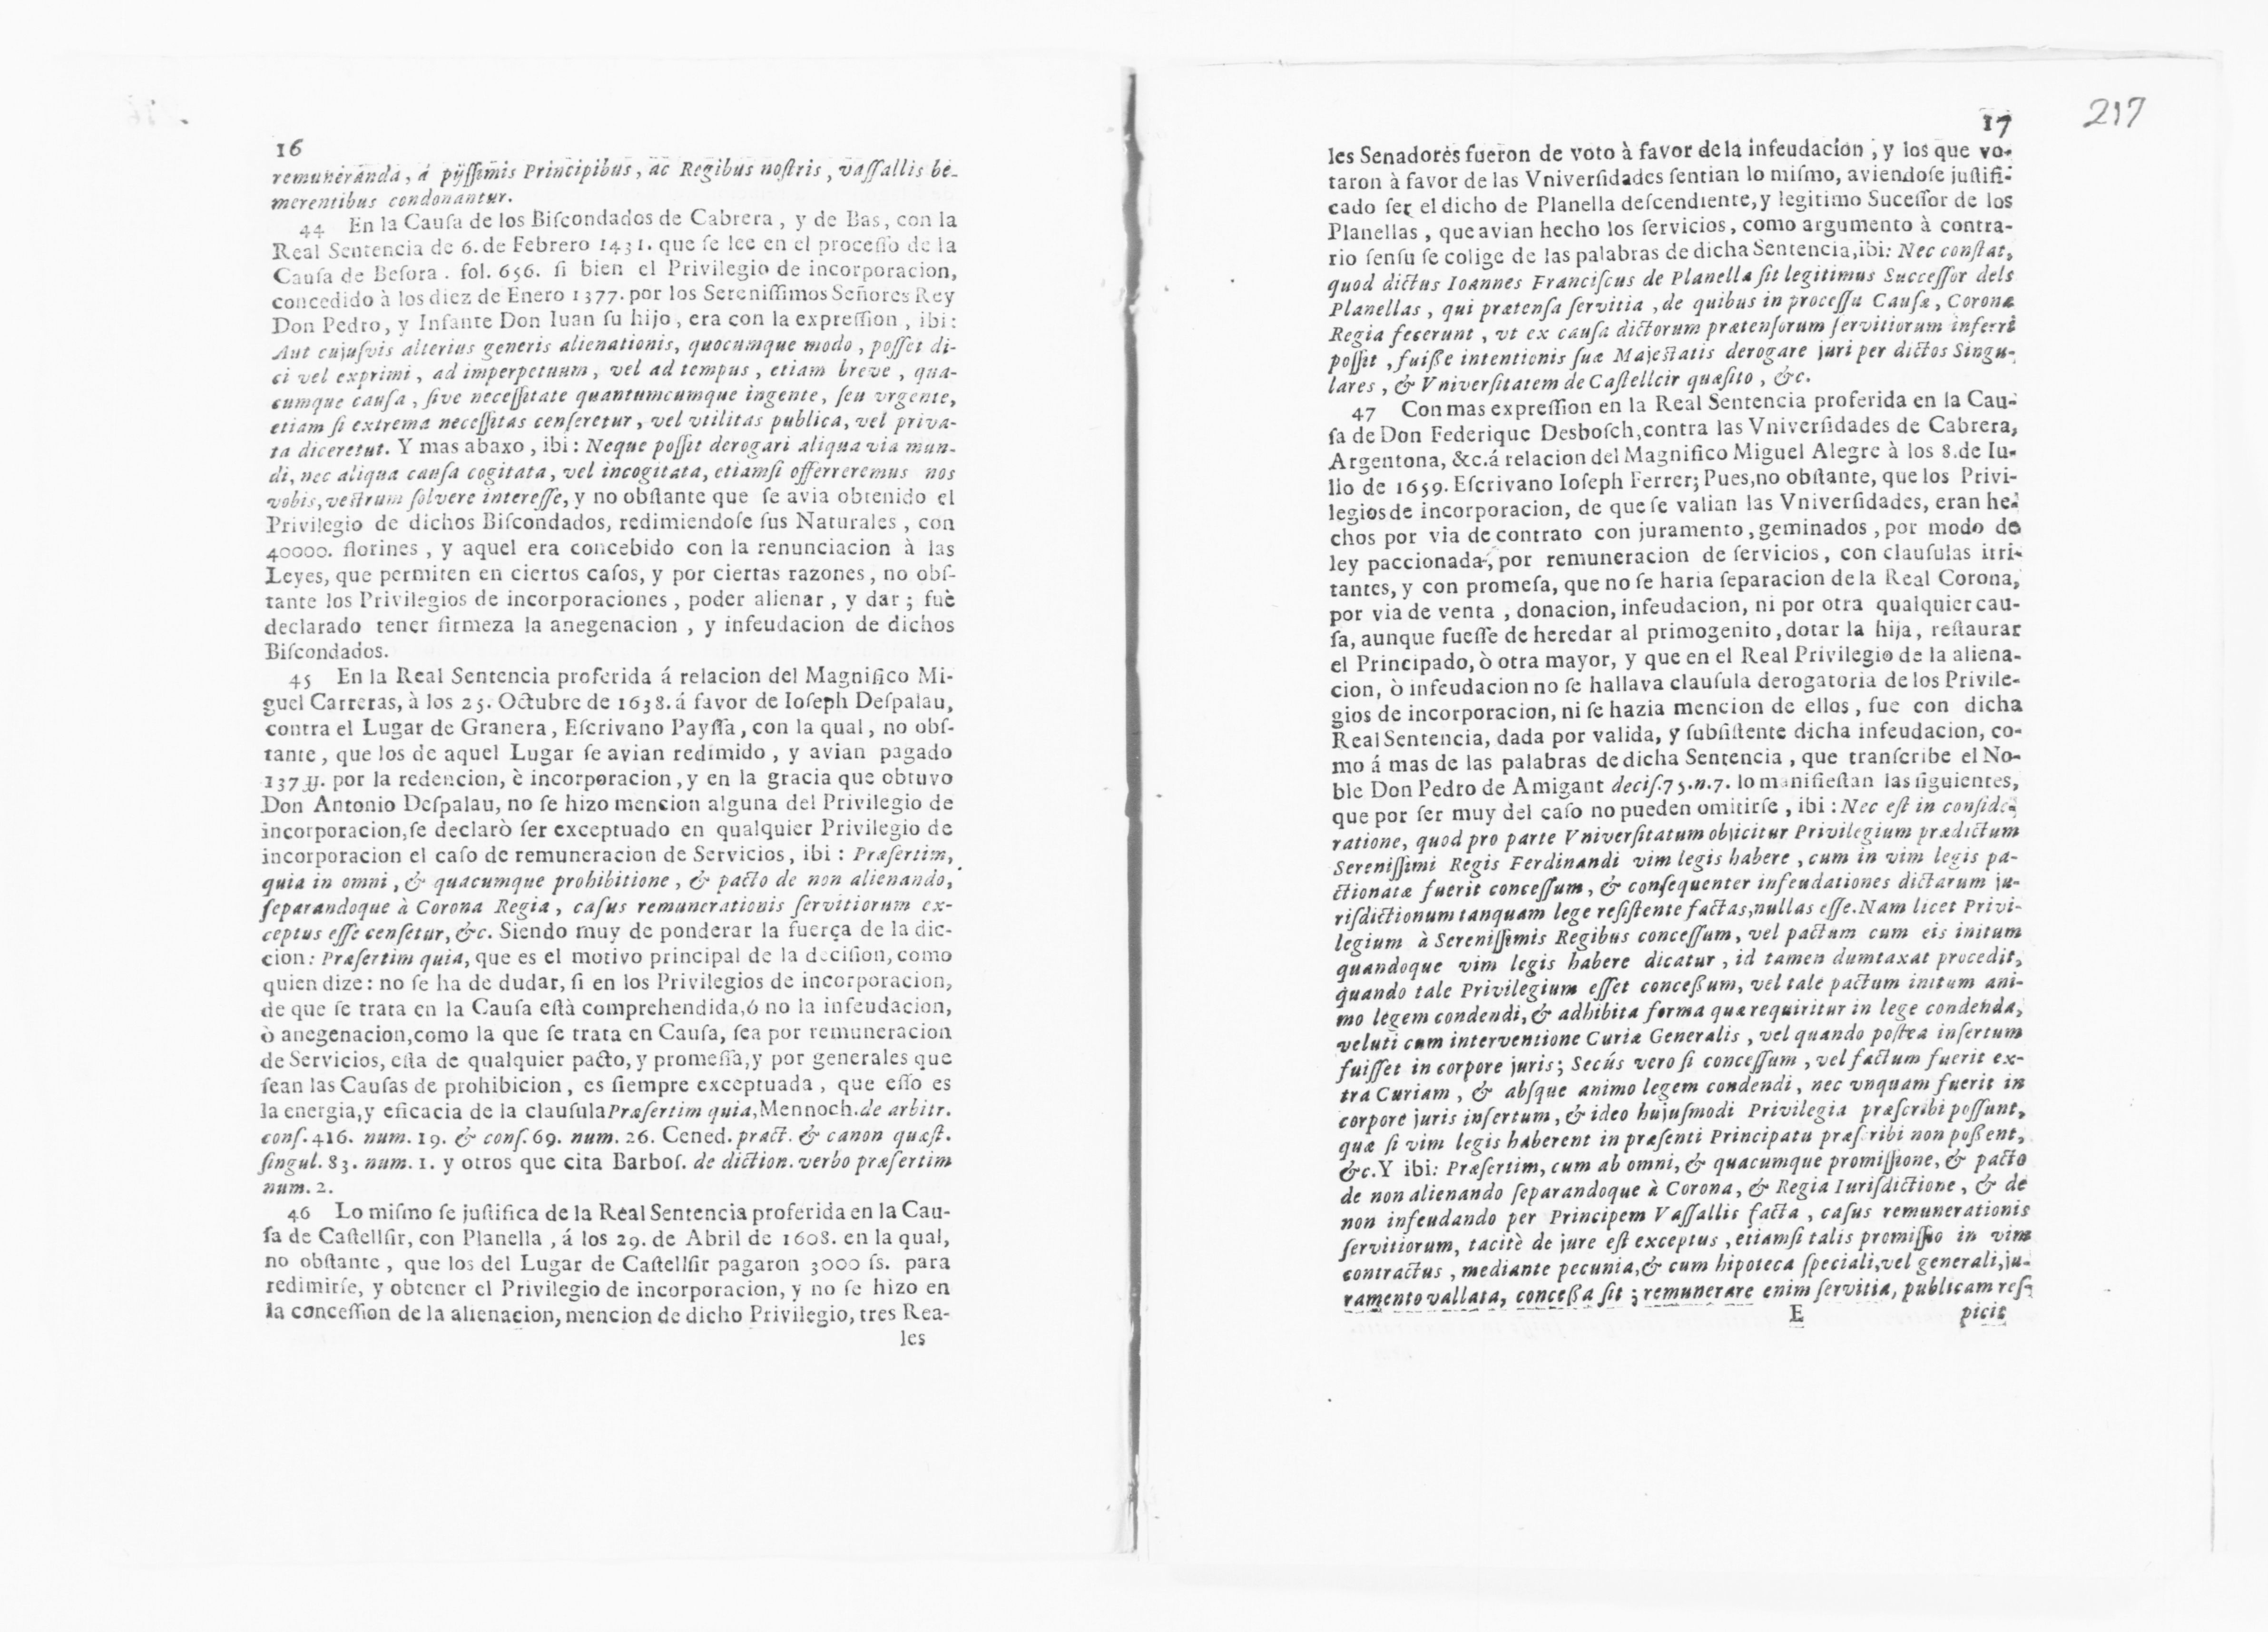 16
remuneranda, á pijſſimis Principibus, ac Regibus noſtris, vaſſallis be-
merentibus condonantur.
44 En la Cauſa de los Biſcondados de Cabrera, y de Bas, con la
Real Sentencia de 6. de Febrero 1431. que ſe lee en el proceſſo de la
Cauſa de Beſora. fol. 656. ſi bien el Privilegio de incorporacion,
concedido à los diez de Enero 1377. por los Sereniſſimos Señores Rey
Don Pedro, y Infante Don Iuan ſu hijo, era con la expreſſion, ibi:
Aut cujuſvis alterius generis alienationis, quocumque modo, poſſet di-
ci vel exprimi, ad imperpetuum, vel ad tempus, etiam breve, qua-
cumque cauſa, ſive neceſſitate quantumcumque ingente, ſeu vrgente,
etiam ſi extrema neceſſitas cenſeretur, vel vtilitas publica, vel priva-
ta diceretut. Y mas abaxo, ibi: Neque poſſit derogari aliqua via mun-
di, nec aliqua cauſa cogitata, vel incogitata, etiamſi offerreremus nos
vobis, veſtrum ſolvere intereſſe, y no obſtante que ſe avia obtenido el
Privilegio de dichos Biſcondados, redimiendoſe ſus Naturales, con
40000. florines, y aquel era concebido con la renunciacion à las
Leyes, que permiten en ciertos caſos, y por ciertas razones, no obſ-
tante los Privilegios de incorporaciones, poder alienar, y dar; fuè
declarado tener firmeza la anegenacion, y infeudacion de dichos
Biſcondados.
45 En la Real Sentencia proferida á relacion del Magnifico Mi-
guel Carreras, à los 25. Octubre de 1638. á favor de Ioſeph Deſpalau,
contra el Lugar de Granera, Eſcrivano Payſſa, con la qual, no obſ-
tante, que los de aquel Lugar ſe avian redimido, y avian pagado
137 por la redencion, è incorporacion, y en la gracia que obtuvo
Don Antonio Deſpalau, no ſe hizo mencion alguna del Privilegio de
incorporacion, ſe declarò ſer exceptuado en qualquier Privilegio de
incorporacion el caſo de remuneracion de Servicios, ibi: Præſertim,
quia in omni, & quacumque prohibitione, & pacto de non alienando,
ſeparandoque à Corona Regia, caſus remunerationis ſervitiorum ex-
ceptus eſſe cenſetur, &c. Siendo muy de ponderar la fuerça de la dic-
cion: Præſertim quia, que es el motivo principal de la deciſion, como
quien dize: no ſe ha de dudar, ſi en los Privilegios de incorporacion,
de que ſe trata en la Cauſa eſtà comprehendida, ó no la infeudacion,
ò anegenacion, como la que ſe trata en Cauſa, ſea por remuneracion
de Servicios, eſta de qualquier pacto, y promeſſa, y por generales que
ſean las Cauſas de prohibicion, es ſiempre exceptuada, que eſſo es
la energia, y eficacia de la clauſula Præſertim quia, Mennoch. de arbitr.
conſ. 416. num. 19. & conſ. 69. num. 26. Cened. pract. & canon quæſt.
ſingul. 83. num. 1. y otros que cita Barboſ. de diction. verbo præſertim
num. 2.
46 Lo miſmo ſe juſtifica de la Real Sentencia proferida en la Cau-
ſa de Caſtellſir, con Planella, á los 29. de Abril de 1608. en la qual,
no obſtante, que los del Lugar de Caſtellſir pagaron 3000 ſs. para
redimirſe, y obtener el Privilegio de incorporacion, y no ſe hizo en
la conceſſion de la alienacion, mencion de dicho Privilegio, tres Rea-
les
17
217
les Senadores fueron de voto à favor de la infeudacion, y los que vo-
taron à favor de las Vniverſidades ſentian lo miſmo, aviendoſe juſtifi-
cado ſer el dicho de Planella deſcendiente, y legitimo Suceſſor de los
Planellas, que avian hecho los ſervicios, como argumento à contra-
rio ſenſu ſe colige de las palabras de dicha Sentencia, ibi: Nec conſtat,
quod dictus Ioannes Franciſcus de Planella ſit legitimus Succeſſor dels
Planellas, qui prætenſa ſervitia, de quibus in proceſſu Cauſæ, Coronæ
Regia fecerunt, vt ex cauſa dictorum prætenſorum ſervitiorum inferri
poſſit, fuiße intentionis ſuæ Majeſtatis derogare juri per dictos Singu-
lares, & Vniverſitatem de Caſtellcir quæſito, &c.
47 Con mas expreſſion en la Real Sentencia proferida en la Cau-
ſa de Don Federique Desboſch, contra las Vniverſidades de Cabrera,
Argentona, &c. á relacion del Magnifico Miguel Alegre à los 8. de Iu-
lio de 1659. Eſcrivano Ioſeph Ferrer; Pues, no obſtante, que los Privi-
legios de incorporacion, de que ſe valian las Vniverſidades, eran he-
chos por via de contrato con juramento, geminados, por modo de
ley paccionada, por remuneracion de ſervicios, con clauſulas irri-
tantes, y con promeſa, que no ſe haria ſeparacion de la Real Corona,
por via de venta, donacion, infeudacion, ni por otra qualquier cau-
ſa, aunque fueſſe de heredar al primogenito, dotar la hija, reſtaurar
el Principado, ò otra mayor, y que en el Real Privilegio de la aliena-
cion, ò infeudacion no ſe hallava clauſula derogatoria de los Privile-
gios de incorporacion, ni ſe hazia mencion de ellos, fue con dicha
Real Sentencia, dada por valida, y ſubſiſtente dicha infeudacion, co-
mo á mas de las palabras de dicha Sentencia, que tranſcribe el No-
ble Don Pedro de Amigant deciſ. 75. n. 7. lo manifieſtan las ſiguientes,
que por ſer muy del caſo no pueden omitirſe, ibi: Nec eſt in conſide-
ratione, quod pro parte Vniverſitatum objicitur Privilegium prædictum
Sereniſſimi Regis Ferdinandi vim legis habere, cum in vim legis pa-
ctionatæ fuerit conceſſum, & conſequenter infeudationes dictarum ju-
riſdictionum tanquam lege reſiſtente factas, nullas eſſe. Nam licet Privi-
legium à Sereniſſimis Regibus conceſſum, vel pactum cum eis initum
quandoque vim legis habere dicatur, id tamen dumtaxat procedit,
quando tale Privilegium eſſet conceßum, vel tale pactum initum ani-
mo legem condendi, & adhibita forma quæ requiritur in lege condenda,
veluti cum interventione Curiæ Generalis, vel quando poſtea inſertum
fuiſſet in corpore juris; Secús vero ſi conceſſum, vel factum fuerit ex-
tra Curiam, & abſque animo legem condendi, nec vnquam fuerit in
corpore juris inſertum, & ideo hujuſmodi Privilegia præſcribi poſſunt,
quæ ſi vim legis haberent in præſenti Principatu præſcribi non poßent,
&c. Y ibi: Præſertim, cum ab omni, & quacumque promiſſione, & pacto
de non alienando ſeparandoque à Corona, & Regia Iuriſdictione, & de
non infeudando per Principem Vaſſallis facta, caſus remunerationis
ſervitiorum, tacitè de jure eſt exceptus, etiamſi talis promiſſio in vim
contractus, mediante pecunia, & cum hipoteca ſpeciali, vel generali, ju-
ramento vallata, conceßa ſit; remunerare enim ſervitia, publicam reſ-
E picit